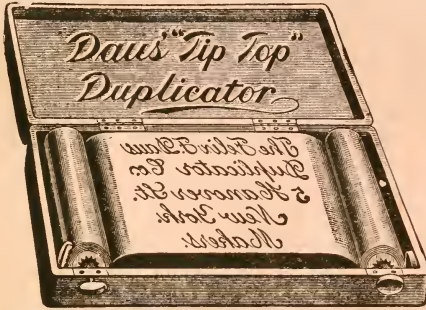 "Daus' "Tip Top"
Duplicator
The Felix F. Daus
Duplicator Co.
5 Hanover St.
New York.
Makers.